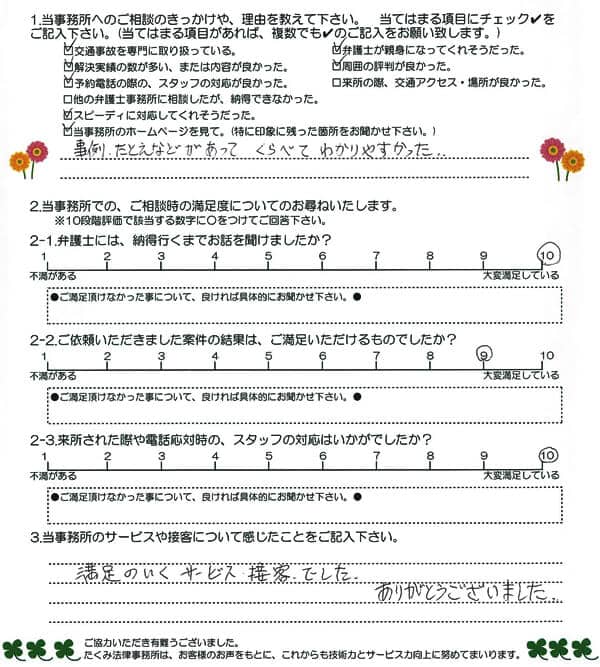 1.当事務所へのご相談のきっかけや、理由を教えて下さい。 当てはまる項目にチェック✔を
ご記入下さい。(当てはまる項目があれば、複数でも✔のご記入をお願い致します。)
☑交通事故を専門に取り扱っている。 ☑弁護士が親身になってくれそうだった。
☑解決実績の数が多い、または内容が良かった。 ☑周囲の評判が良かった。
☑予約電話の際の、スタッフの対応が良かった。 □来所の際、交通アクセス・場所が良かった。
□他の弁護士事務所に相談したが、納得できなかった。
☑スピーディに対応してくれそうだった。
☑当事務所のホームページを見て。(特に印象に残った箇所をお聞かせ下さい。)
事例.たとえなどがあって くらべて わかりやすかった..
2.当事務所での、ご相談時の満足度についてのお尋ねいたします。
※10段階評価で該当する数字に○をつけてご回答下さい。
2-1.弁護士には、納得行くまでお話を聞けましたか?
1 2 3 4 5 6 7 8 9 10
不満がある 大変満足している
●ご満足頂けなかった事について、良ければ具体的にお聞かせ下さい。●
2-2.ご依頼いただきました案件の結果は、ご満足いただけるものでしたか?
1 2 3 4 5 6 7 8 9 10
不満がある 大変満足している
●ご満足頂けなかった事について、良ければ具体的にお聞かせ下さい。●
2-3.来所された際や電話応対時の、スタッフの対応はいかがでしたか?
1 2 3 4 5 6 7 8 9 10
不満がある 大変満足している
●ご満足頂けなかった事について、良ければ具体的にお聞かせ下さい。●
3.当事務所のサービスや接客について感じたことをご記入下さい。
満足のいく サービス.接客.でした.
ありがとうございました..
ご協力いただき有難うございました。
たくみ法律事務所は、お客様のお声をもとに、これからも技術力とサービス力向上に努めてまいります。